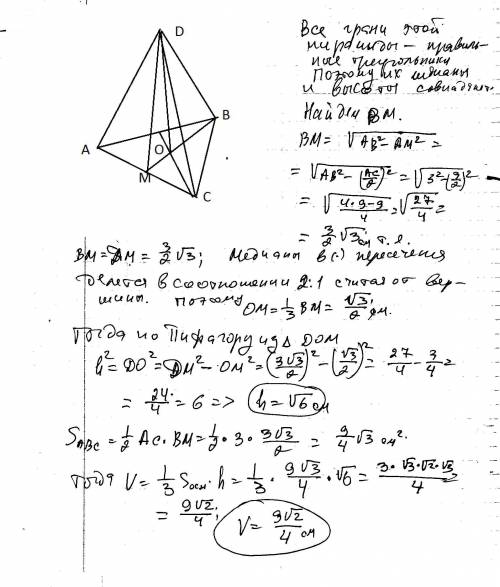 D
A
B
O
M
C
Все грани этой
пирамиды – правиль-
ные треугольники
Поэтому их медианы
и высоты совпадают.
Найдем BM.
BM = √(AB² - AM²) =
= √(AB² - (AC/2)²) = √(3² - (3/2)²) =
= √((4·9-9)/4) = √(27/4) =
= 3/2 √3 см т.е.
BM = DM = 3/2 √3; Медианы в (·) пересечения
делятся в соотношении 2:1 считая от вер-
шины. Поэтому OM = 1/3 BM = √3/2 см.
Тогда по Пифагору из Δ DOM
h² = DO² = DM² - OM² = (3√3/2)² - (√3/2)² = 27/4 - 3/4 =
= 24/4 = 6 => h = √6 см
S ABC = 1/2 AC · BM = 1/2 · 3 · 3√3/2 = 9/4 √3 см².
Тогда V = 1/3 Sосн · h = 1/3 · 9√3/4 · √6 = 3·√3·√2·√3/4 =
= 9√2/4; V = 9√2/4 см